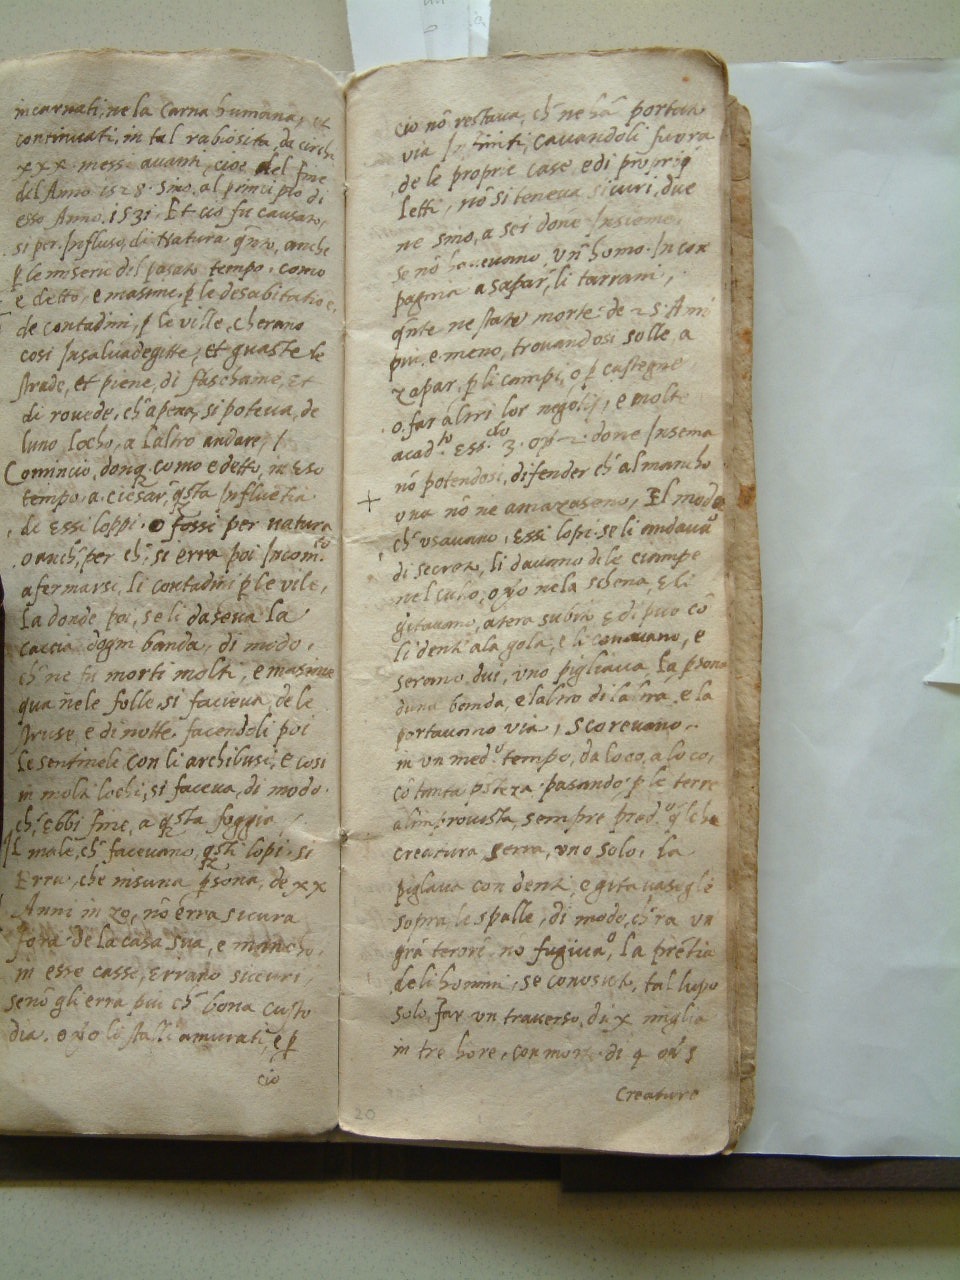 incarnati, ne la Carna humana, et
continuati, in tal rabiosita, da circha
xxx messi avanti, cioe del fine
del Anno 1528. Sino al principio di
esso Anno. 1531. Et cio fu causato,
si per Influso, di Natura, qñto, anche
p le miserie del pasato tempo. como
e detto, e masime. p le desabitatioē,
de contadini, p le ville, cherano
cosi Insalvadegitte, et guaste le
strade, et piene, di faschame, et
di rovede, ch' apena, si poteva, da
luno locho, a laltro andare, /
Comincio, donq. como e detto, in Eso
tempo. a ciesar, qsta Influetia
di Essi loppi. o fossi per natura
o anch', per ch', si erra poi Incom.to
afermarsi, li contadini p le vile,
La donde, poi, se li daseva la
caccia dogni banda, di modo,
ch' ne fu morti molti, e masime
qua nele folle, si facieva, de le
Iruse, e di notte. facendoli poi
le sentinele con li archibusi, e cosi
in molti lochi, si faceva, di modo.
ch', Ebbi fine, a qsta foggia /
Il male, ch' facevano, qsti lopi. si
Erra, che nisuna psona, de xx
Anni in zo, nō erra sicura
fora de la casa sua, e mancho.
in esse casse, Errano sicuri
senō gli erra piu ch' bona custo
dia. o vo li amurati, e p
cio
20
cio nō restava, ch' ne hā portati
via Infiniti, cavandoli fuora
de le proprie case, e di proprij
letti, nō si teneva sicuri, due
ne sino, a sei done Insieme.
se nō havevano, un homo. In com
pagnia a sapar, li tarrani,
qñte ne state morte de 25. Ami
piu. e meno, trovandosi solle, a
zapar. p li campi, o p castegne,
o. far altri lor negotij, e molte
acad.to Ess.do 3. o ū 2. done Insema
nō potendosi, difender ch' al mancho
+ una nō ne amazaseno, El modo
ch' usavano, Essi lopi. se li andava
di secreto, li davano de le ciampe
nel culo, o vo nela schena, E li
gitavano, a tera subito E di puo cō
li denti ala gola, e li canavano, e
serano dui, uno pigliava la psona
duna banda, e laltro di laltra e la
portavano via, / Scorevano.
in un med.o tempo, da loco, a loco,
cō tanta psteza. pasando, p le terre
alimprovista, sempre pred.o q'lche
creatura serra, uno solo, la
piglava con denti, e gitavasegle
sopra le spalle, di modo, ch'ra un
grā terore. nō fugiva, la prētia
deli homini, se conosceto, tal lupo
solo. far un traverso, di x miglia
in tre hore, con morte di 4 o ū 5
Creature